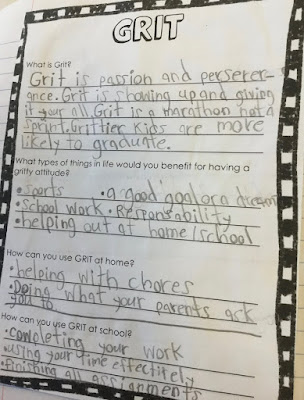 GRIT
What is Grit?
Grit is passion and perserer-
ance. Grit is showing up and giving
it your all. Grit is a marathon not a
sprint. Grittier kids are more
likely to graduate.
What types of things in life would you benefit for having a
gritty attitude?
•sports •a good goal or a dream
•School work •Responsability
•helping out at home/school
How can you use GRIT at home?
•helping with chores
•Doing what your parents ack
you to
How can you use GRIT at school?
•Completing your work
•using your time effectitely
•Finishing all assignments